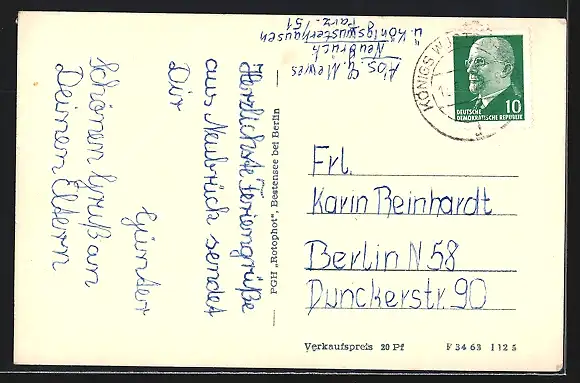 Herzlichste Feriengrüße
aus Neubrück sendet
Dir
Günter
Schönen Gruß an
Deinen Eltern
PGH „Rotophot", Bestensee bei Berlin
Neubrück
ü. Königswusterhausen
Parz. 151
KÖNIGS WUST
10
DEUTSCHE
DEMOKRATISCHE REPUBLIK
Frl.
Karin Reinhardt
Berlin N 58
Dunckerstr. 90
Verkaufspreis 20 Pf
F 34 63 I 12 5